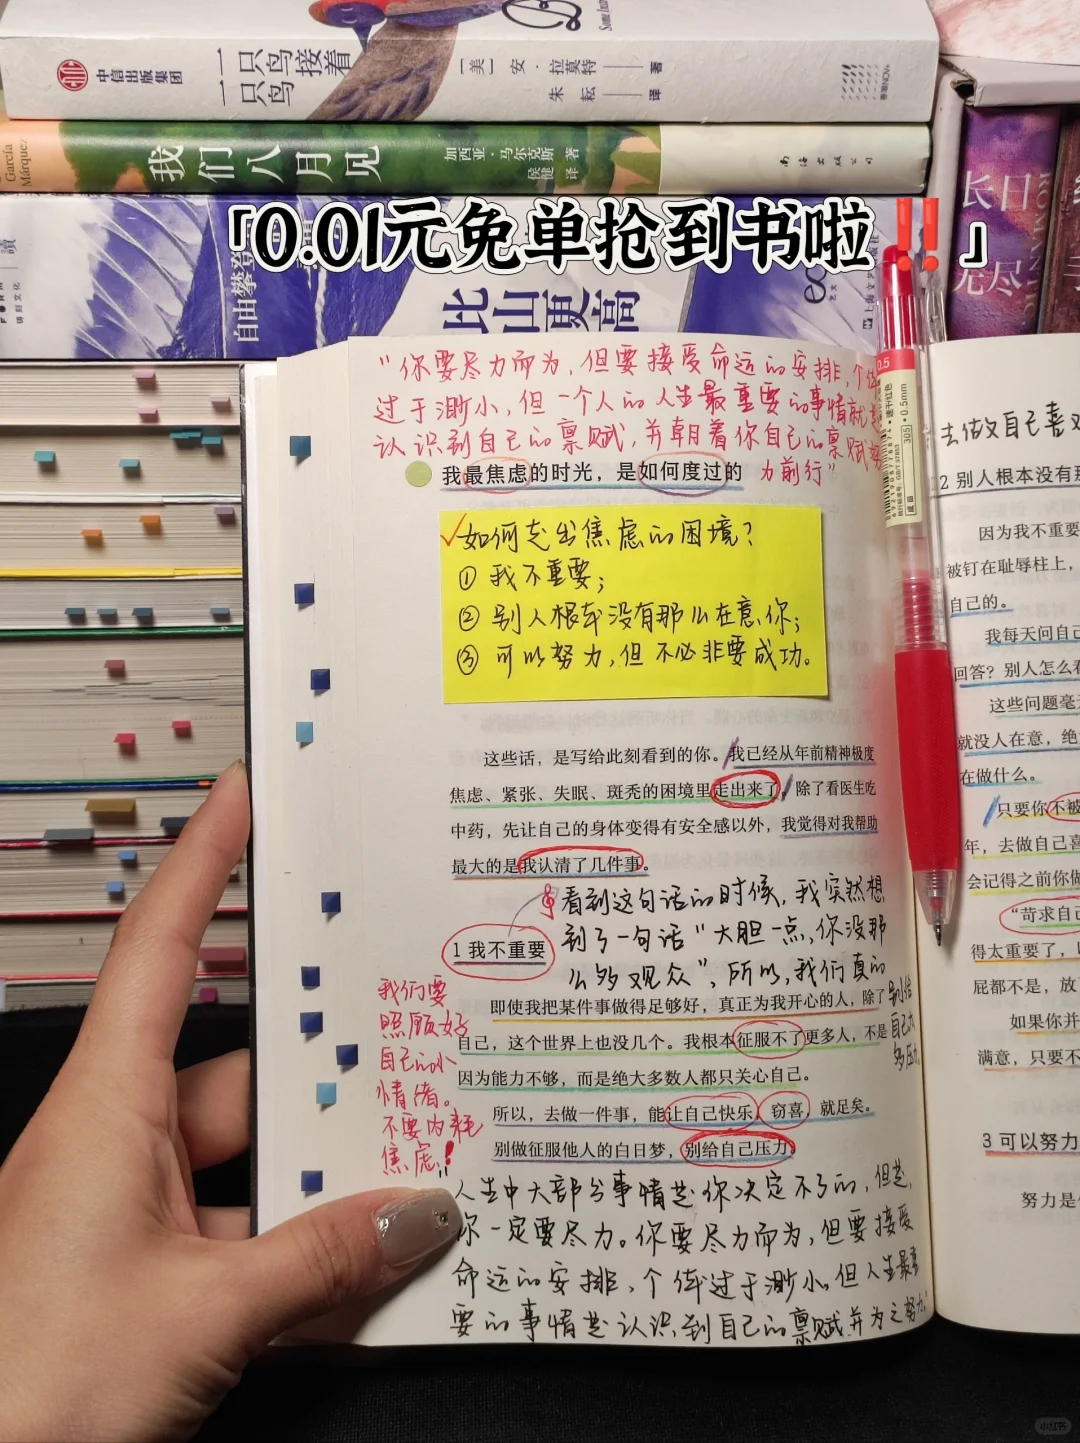 中信出版集团
一只鸟接着
一只鸟
[美] 安·拉莫特 著
朱耘 译
García
Márquez
我们八月见
加西亚·马尔克斯 著
侯健 译
南海出版公司
「0.01元免单抢到书啦‼️」
自由攀登
比山更高
上海文艺出版社
长日
无尽
“你要尽力而为,但要接受命运的安排,个体
过于渺小,但一个人的人生最重要的事情就是
认识到自己的禀赋,并朝着你自己的禀赋努
力前行”
我最焦虑的时光，是如何度过的
✓如何走出焦虑的困境?
① 我不重要;
② 别人根本没有那么在意你;
③ 可以努力,但不必非要成功。
这些话，是写给此刻看到的你。我已经从年前精神极度
焦虑、紧张、失眠、斑秃的困境里走出来了，除了看医生吃
中药，先让自己的身体变得有安全感以外，我觉得对我帮助
最大的是我认清了几件事。
看到这句话的时候,我突然想
到了一句话“大胆一点,你没那
么多观众”,所以,我们真的
别给
自己太
多压力。
1 我不重要
我们要
照顾好
自己的小
情绪。
不要内耗
焦虑!
即使我把某件事做得足够好，真正为我开心的人，除了
自己，这个世界上也没几个。我根本征服不了更多人，不是
因为能力不够，而是绝大多数人都只关心自己。
所以，去做一件事，能让自己快乐，窃喜，就足矣。
别做征服他人的白日梦，别给自己压力。
“人生中大部分事情是你决定不了的,但是,
你一定要尽力。你要尽力而为,但要接受
命运的安排,个体过于渺小,但人生最重
要的事情是认识到自己的禀赋,并为之努力。”
0.5
305 · 0.5mm
去做自己喜欢
2 别人根本没有那
因为我不重要
被钉在耻辱柱上，
自己的。
我每天问自己
回答？别人怎么看
这些问题毫无
就没人在意，绝
在做什么。
只要你不被
年，去做自己喜
会记得之前你做
“苛求自己
得太重要了，
屁都不是，放
如果你并
满意，只要不
3 可以努力
努力是
小红书